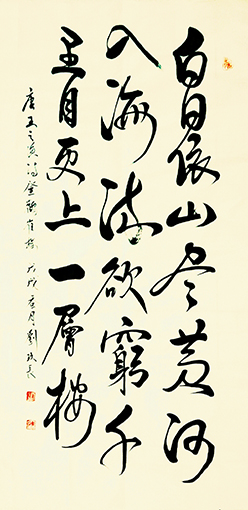 白日依山尽黄河
入海流欲窮千
里目更上一層樓
唐王之涣诗登鸛雀樓 戊戌 月劉